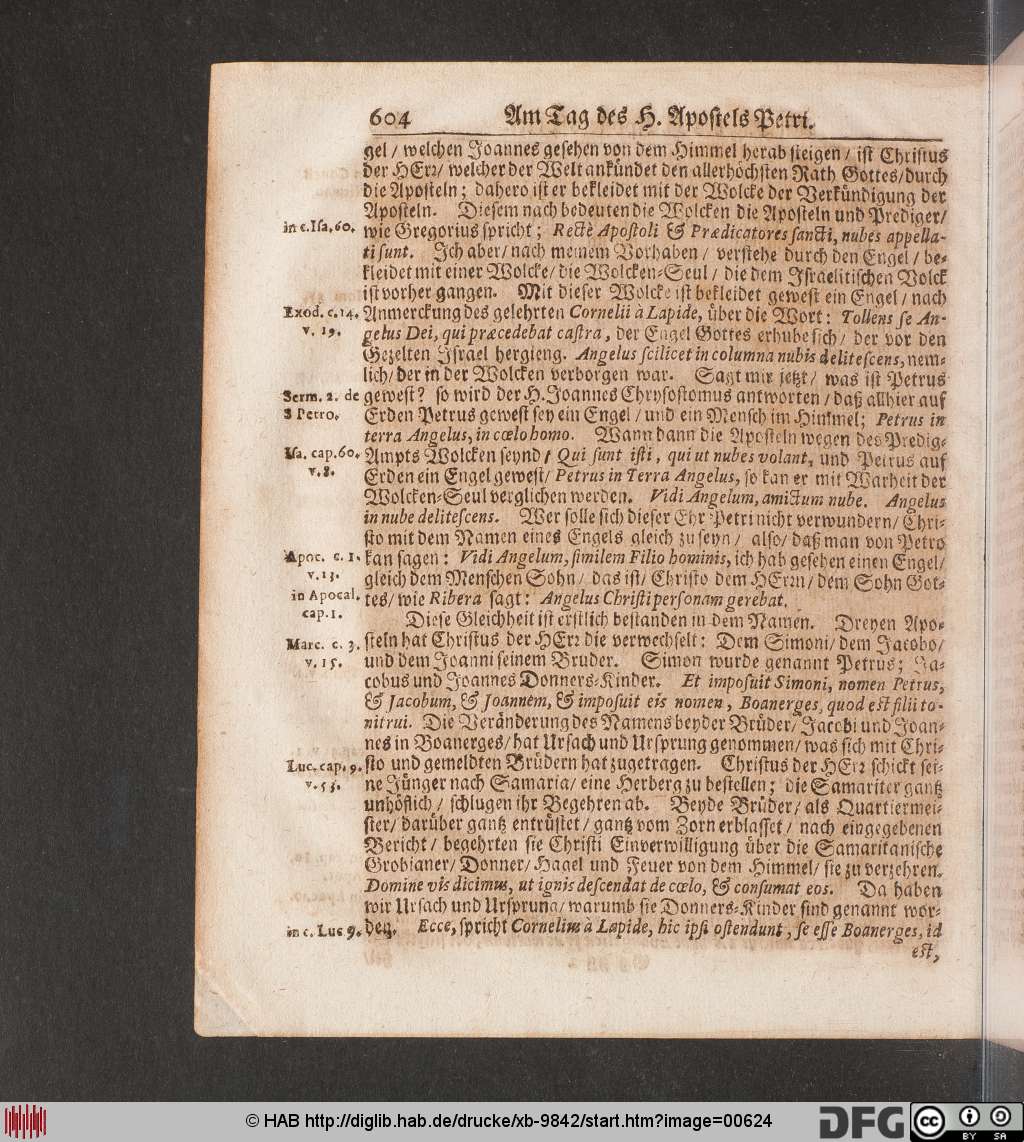 604 Am Tag des H. Apostels Petri.
gel / welchen Joannes gesehen von dem Himmel herab steigen / ist Christus
der HErr / welcher der Welt ankündet den allerhöchsten Rath Gottes / durch
die Aposteln ; dahero ist er bekleidet mit der Wolcke der Verkündigung der
Aposteln. Diesem nach bedeuten die Wolcken die Aposteln und Prediger /
in c. Isa. 60. wie Gregorius spricht ; Rectè Apostoli & Prædicatores sancti, nubes appella-
ti sunt. Ich aber / nach meinem Vorhaben / verstehe durch den Engel / be-
kleidet mit einer Wolcke / die Wolcken-Seul / die dem Israelitischen Volck
ist vorher gangen. Mit dieser Wolcke ist bekleidet gewest ein Engel / nach
Exod. c. 14. Anmerckung des gelehrten Cornelii à Lapide, über die Wort : Tollens se An-
v. 19. gelus Dei, qui præcedebat castra, der Engel Gottes erhube sich / der vor den
Gezelten Israel hergieng. Angelus scilicet in columna nubis delitescens, nem-
lich / der in der Wolcken verborgen war. Sagt mir jetzt / was ist Petrus
Serm. 2. de gewest? so wird der H. Joannes Chrysostomus antworten / daß allhier auf
S Petro. Erden Petrus gewest sey ein Engel / und ein Mensch im Himmel ; Petrus in
terra Angelus, in cœlo homo. Wann dann die Aposteln wegen des Predig-
Isa. cap. 60. Ampts Wolcken seynd / Qui sunt isti, qui ut nubes volant, und Petrus auf
v. 8. Erden ein Engel gewest / Petrus in Terra Angelus, so kan er mit Warheit der
Wolcken-Seul verglichen werden. Vidi Angelum, amictum nube. Angelus
in nube delitescens. Wer solle sich dieser Ehr Petri nicht verwundern / Chri-
sto mit dem Namen eines Engels gleich zu seyn / also / daß man von Petro
Apoc. c. 1. kan sagen : Vidi Angelum, similem Filio hominis, ich hab gesehen einen Engel /
v. 13. gleich dem Menschen Sohn / das ist / Christo dem HErrn / dem Sohn Got-
in Apocal. tes / wie Ribera sagt : Angelus Christi personam gerebat.
cap. 1. Diese Gleichheit ist erstlich bestanden in dem Namen. Dreyen Apo-
Marc. c. 3. steln hat Christus der HErr die verwechselt : Dem Simoni / dem Jacobo /
v. 15. und dem Joanni seinem Bruder. Simon wurde genannt Petrus ; Ja-
cobus und Joannes Donners-Kinder. Et imposuit Simoni, nomen Petrus,
& Jacobum, & Joannem, & imposuit eis nomen, Boanerges, quod est filii to-
nitrui. Die Veränderung des Namens beyder Brüder / Jacobi und Joan-
nes in Boanerges / hat Ursach und Ursprung genommen / was sich mit Chri-
Luc. cap. 9. sto und gemeldten Brüdern hat zugetragen. Christus der HErr schickt sei-
v. 53. ne Jünger nach Samaria / eine Herberg zu bestellen ; die Samariter gantz
unhöflich / schlugen ihr Begehren ab. Beyde Brüder / als Quartiermei-
ster / darüber gantz entrüstet / gantz vom Zorn erblasset / nach eingegebenen
Bericht / begehrten sie Christi Einverwilligung über die Samaritanische
Grobianer / Donner / Hagel und Feuer von dem Himmel / sie zu verzehren.
Domine vis dicimus, ut ignis descendat de cœlo, & consumat eos. Da haben
wir Ursach und Ursprung / warumb sie Donners-Kinder sind genannt wor-
in c. Luc 9. den. Ecce, spricht Cornelius à Lapide, hic ipsi ostendunt, se esse Boanerges, id
est,
© HAB http://diglib.hab.de/drucke/xb-9842/start.htm?image=00624
DFG
CC BY SA